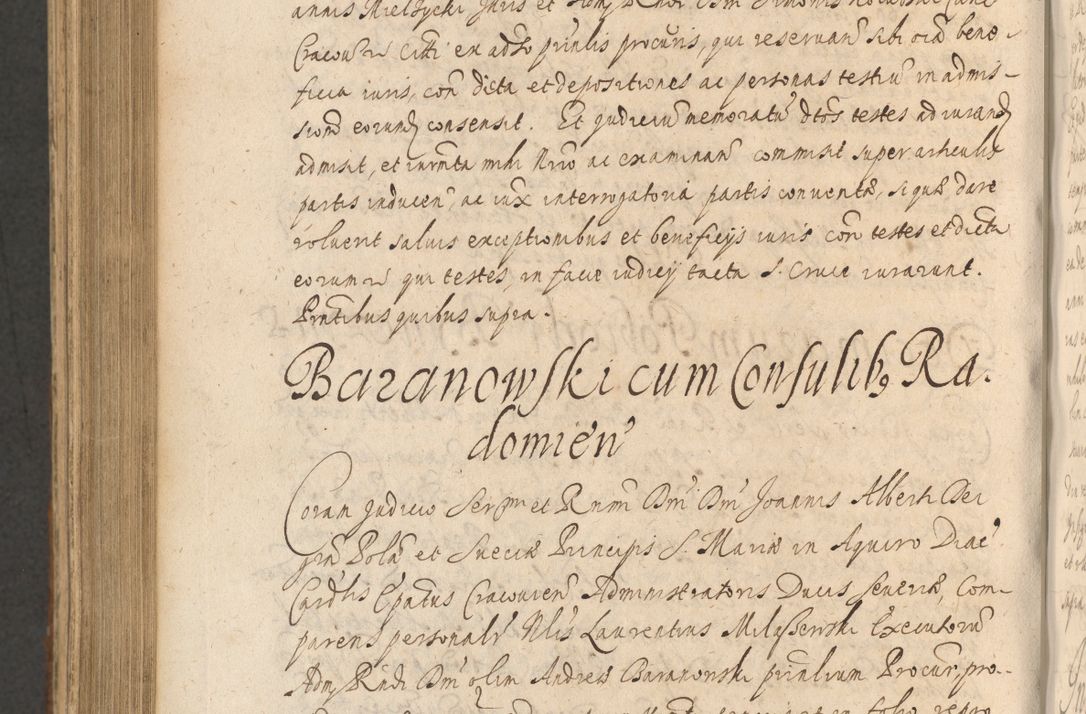 annis Mielżycki Juris et Adm Rndi Dni Simonis
Cracovien Citti ex adso prinlis procuris, qui reservan sibi oia bene-
ficia iuris, con dicta et depositiones ac personas testiu in admis-
sione eorund consensit. Et Judiciu memoratu dtos testes ad iurand
admisit, et iurmta mihi Nrio ac examinan commisit super articulis
partis inducen, ac iux interrogatoria partis conventæ, si quæ dare
voluerit salvis exceptionibus et beneficijs iuris con testes et dicta
eorum qui testes, in facie iudicij tacta S. Cruce iurarunt.
Prntibus quibus supra.
Baranowski cum Consulib9 Ra.
domien
Coram Judicio Sermi et Rnmi Dni Dni Joannis Alberti Dei
gra Pola et Sueciæ Principis S. Mariæ in Aquiro Diac
Cardlis Epatus Cracovien Administratoris Ducis Severiæ, Com-
parens personalr Nlis Laurentius Milassewski Executorum
Adm Rndi Dni olim Andreæ Baranowski prinlium Procur, pro-
in folio repro